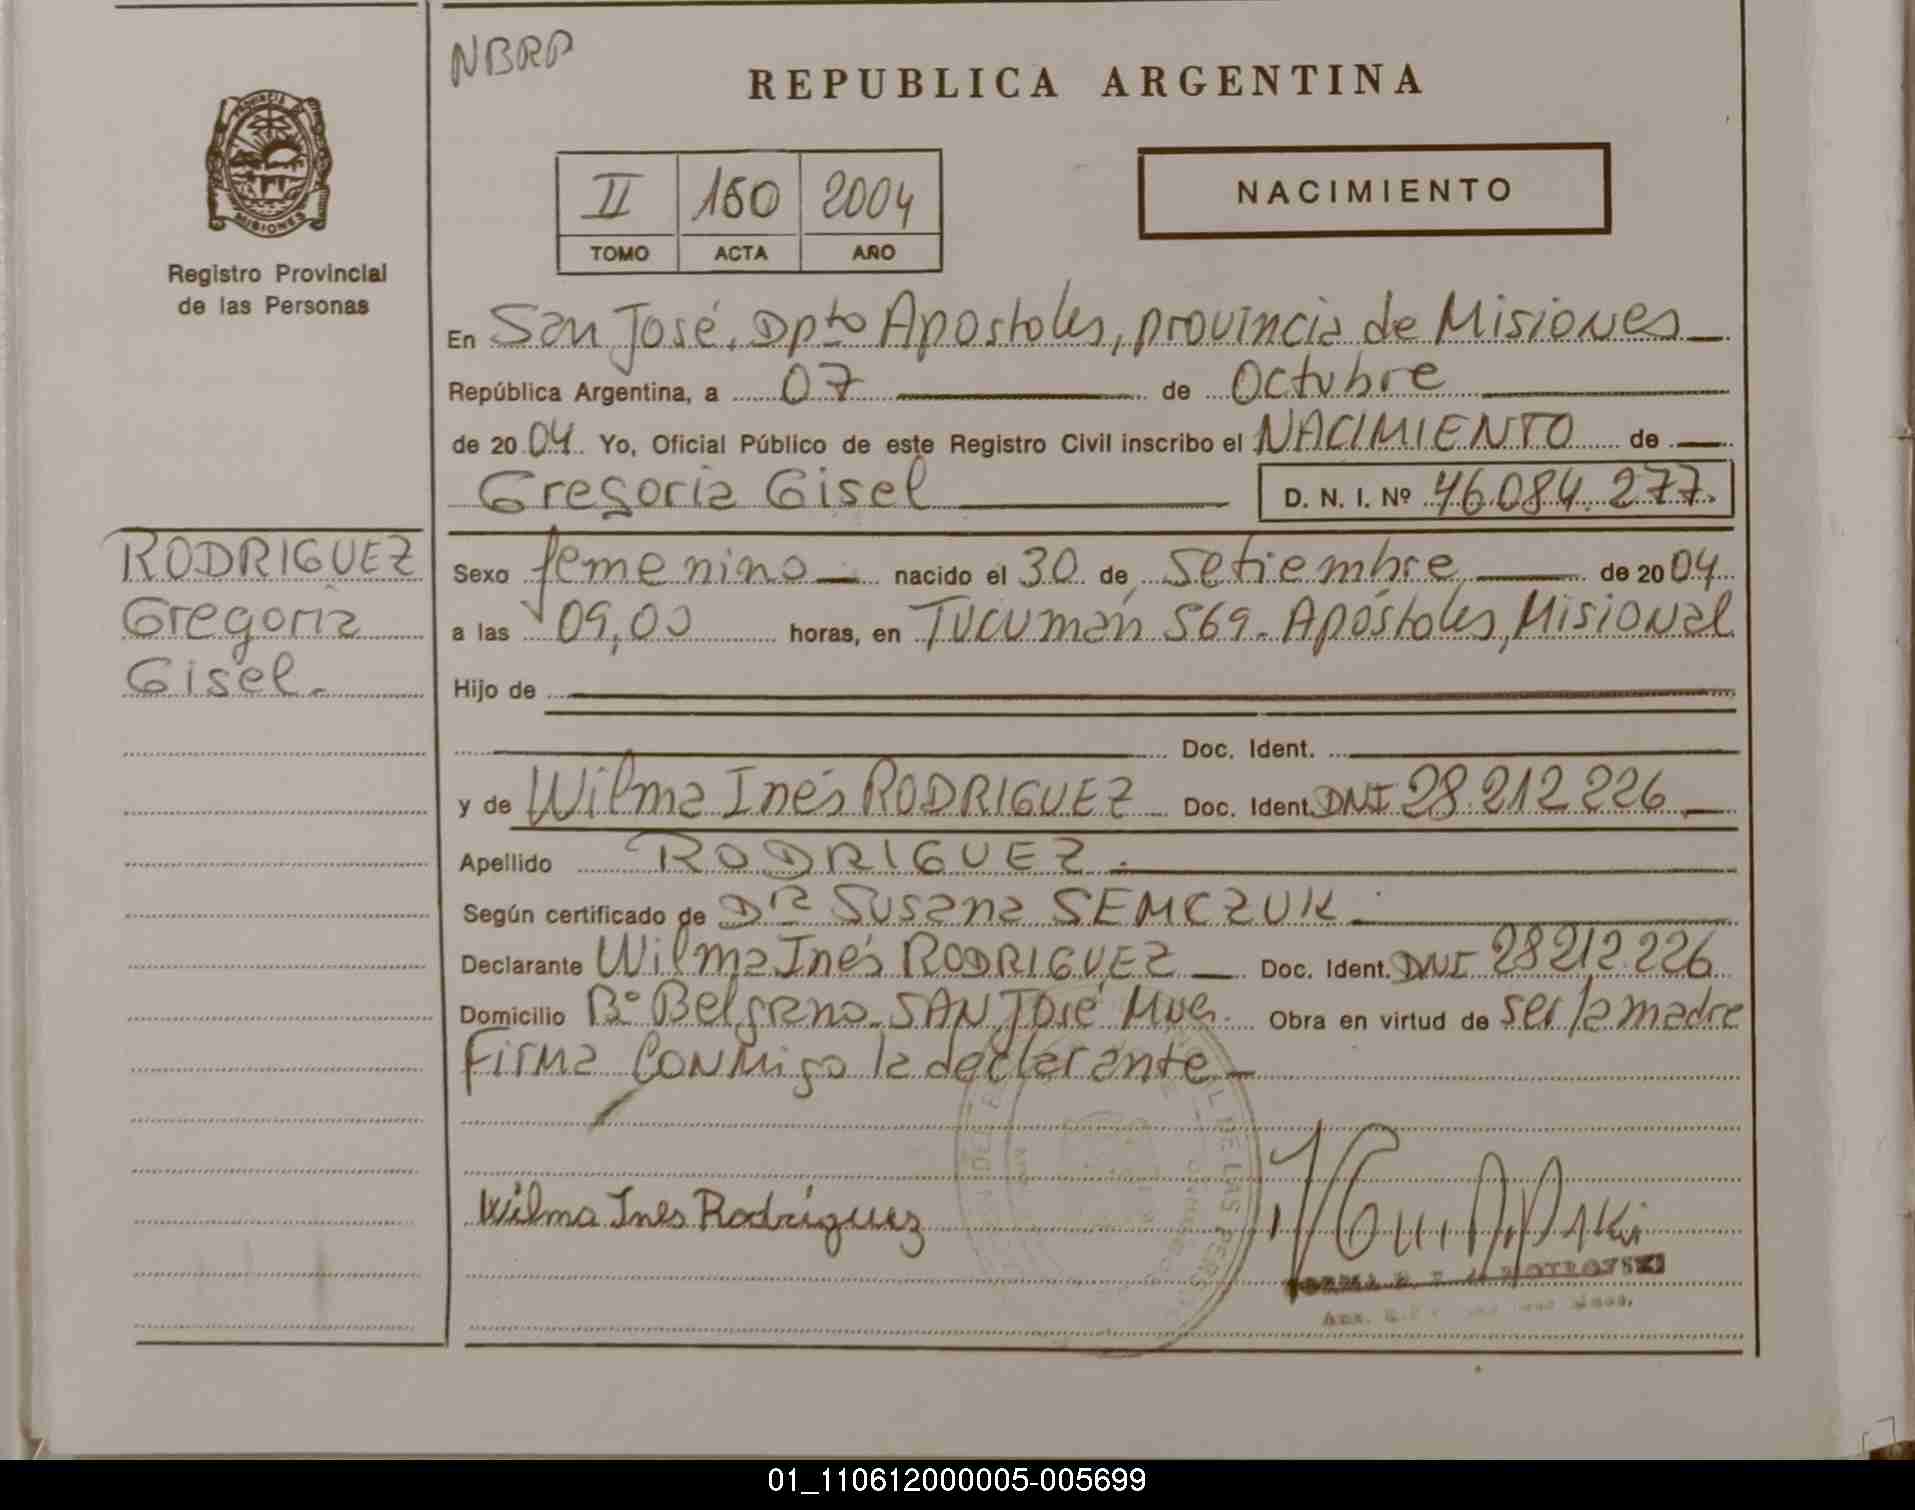 NBRP
REPUBLICA ARGENTINA
PROVINCIA DE
MISIONES
Registro Provincial
de las Personas
II 160 2004
TOMO ACTA AÑO
NACIMIENTO
En San José, Dpto Apostoles, provincia de Misiones
República Argentina, a 07 de Octubre
de 2004 Yo, Oficial Público de este Registro Civil inscribo el NACIMIENTO de
Gregoria Gisel D. N. I. Nº 46.084.277.
RODRIGUEZ
Gregoria
Gisel.
Sexo femenino nacido el 30 de Setiembre de 2004
a las 09,00 horas, en Tucumán 569. Apóstoles, Misional
Hijo de
Doc. Ident.
y de Wilma Inés RODRIGUEZ Doc. Ident. DNI 28.212.226
Apellido RODRIGUEZ.
Según certificado de Dra Susana SEMCZUK.
Declarante Wilma Inés RODRIGUEZ Doc. Ident. DNI 28.212.226
Domicilio Bº Belgrano. SAN José Mnes. Obra en virtud de ser la madre
Firma conmigo la declarante
Wilma Ines Rodriguez
01_110612000005-005699